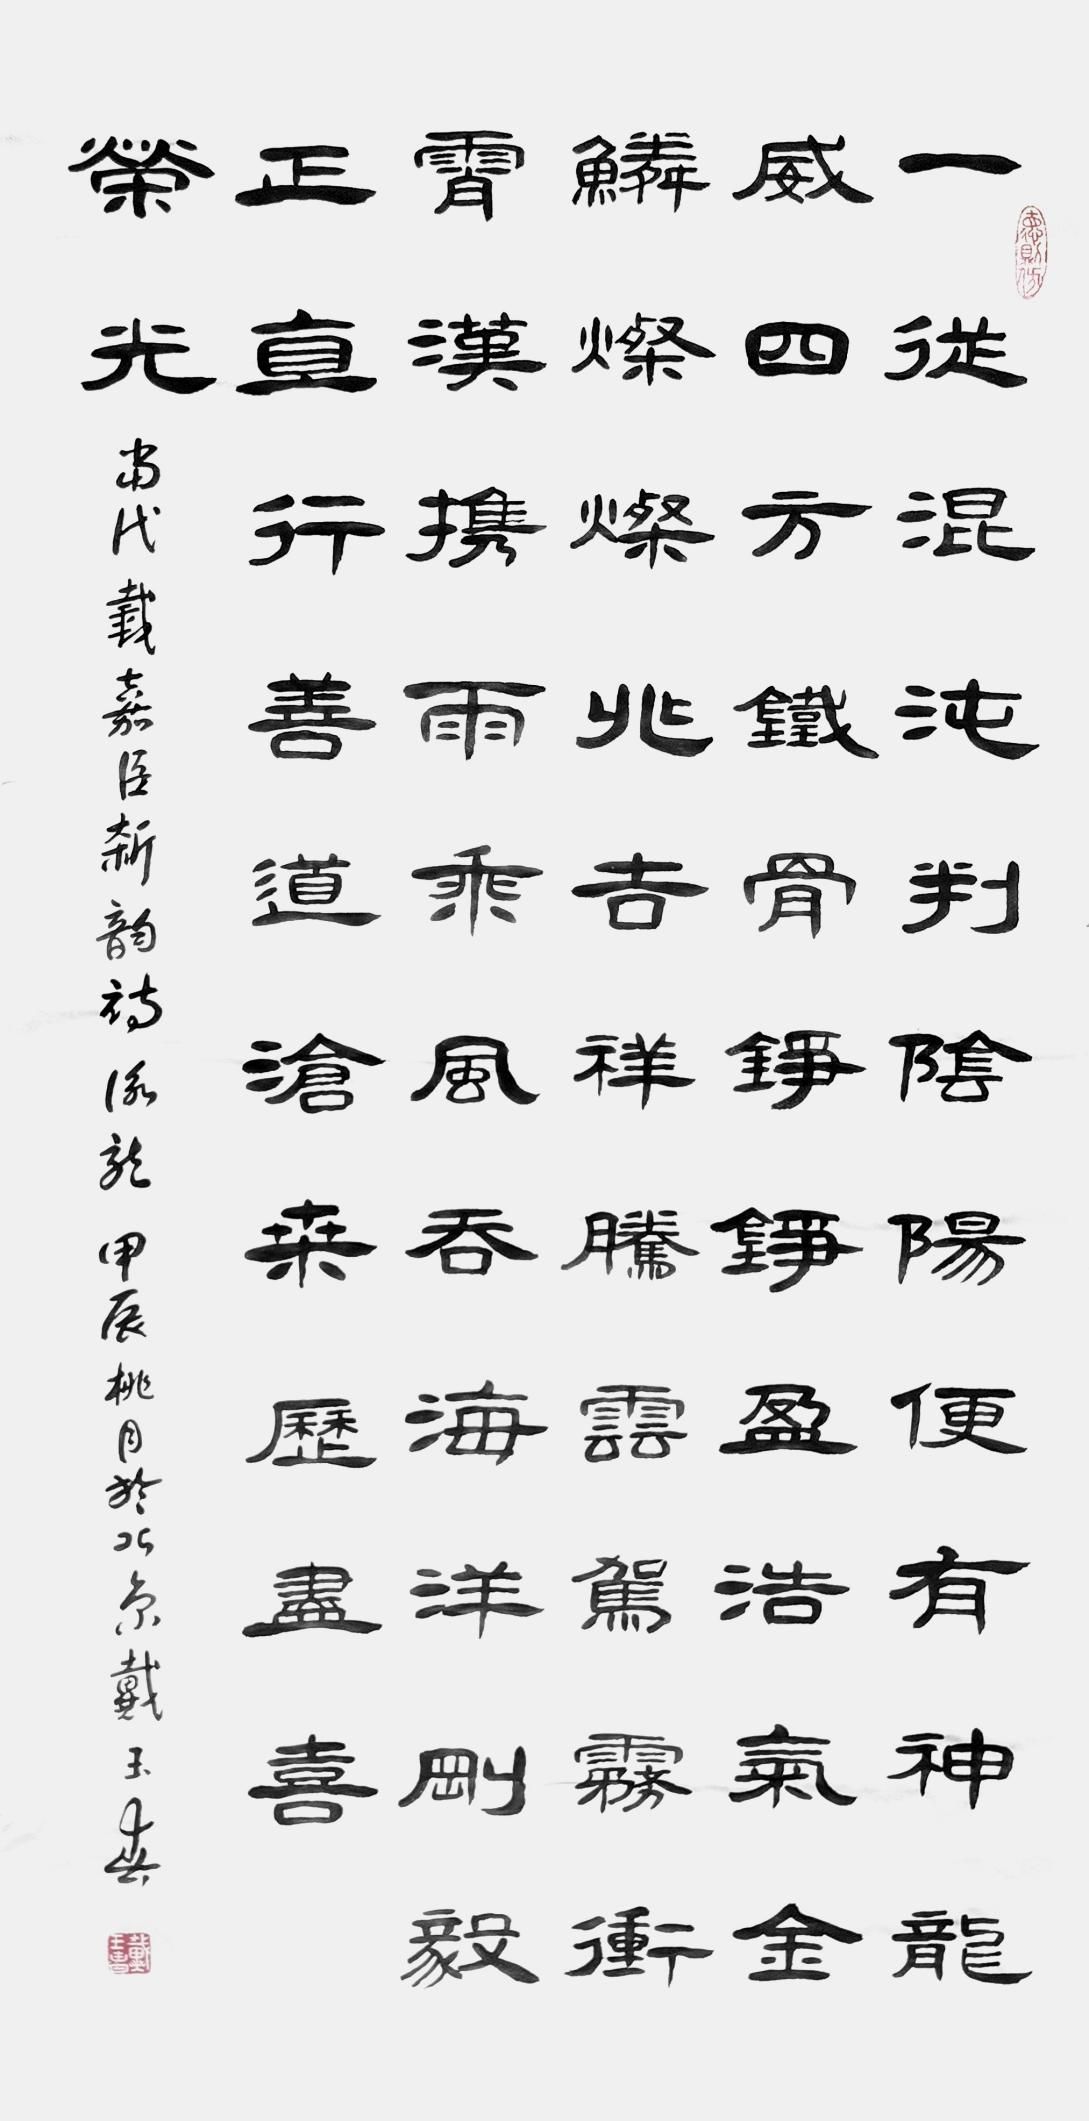 一從混沌判陰陽便有神龍
威四方鐵骨錚錚盈浩氣金
鱗燦燦兆吉祥騰雲駕霧衝
霄漢携雨乘風吞海洋剛毅
正直行善道滄桑歷盡喜
榮光
當代戴嘉臣新韻詩詠龍甲辰桃月於北京戴玉春